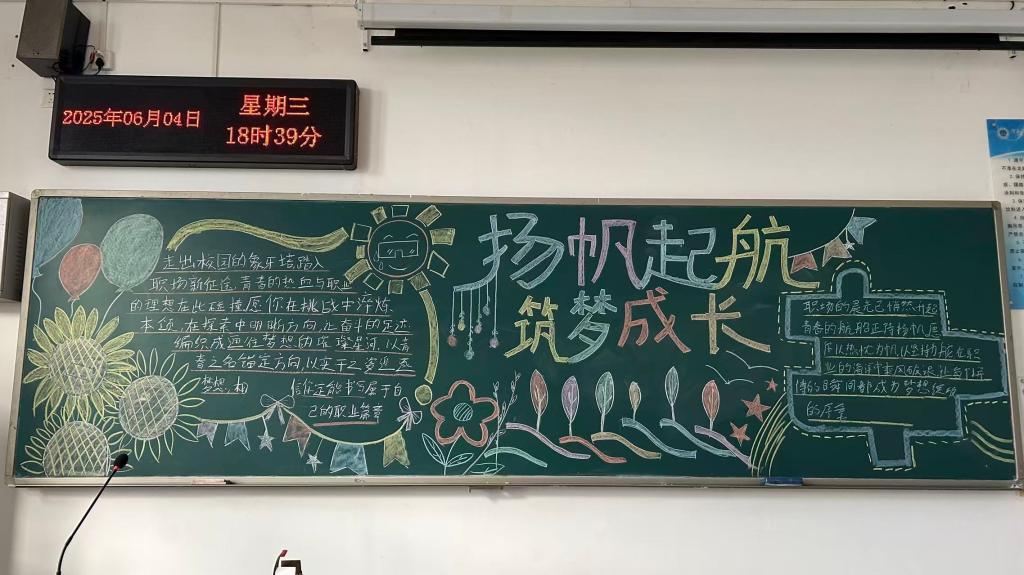 2025年06月04日
星期三
18时39分
扬帆起航
筑梦成长
走出校园的象牙塔踏入
职场新征途,青春的热血与职业
的理想在此碰撞愿你在挑战中淬炼
本领,在探索中明晰方向,让奋斗的足迹
编织成通往梦想的璀璨星河,以青
春之名锚定方向,以实干之姿迎
梦想,相
信你定能书写属于自
己的职业篇章
职场的晨光已悄然升起
青春的航船正待扬帆愿
你以热忱为帆以坚持为
业的海洋乘风破浪让每个
的瞬间都成为梦想
的序章